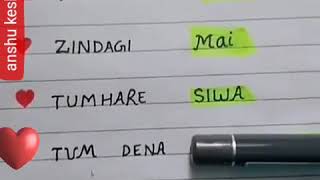 anshu kesh
ZINDAGI Mai
TUMHARE SIWA
TUM DENA